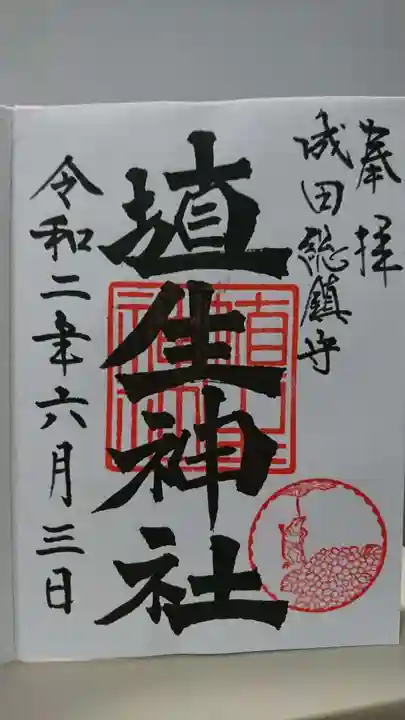 奉拝
成田総鎮守
埴生神社
令和二年六月三日